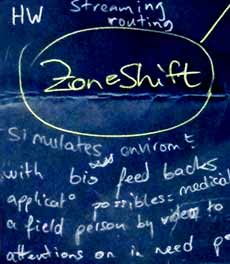 HW
Streaming
routing
ZoneShift
Simulates environt
with bio feed backs
applicat° possibles: medical
a field person by video to
attentions on in need